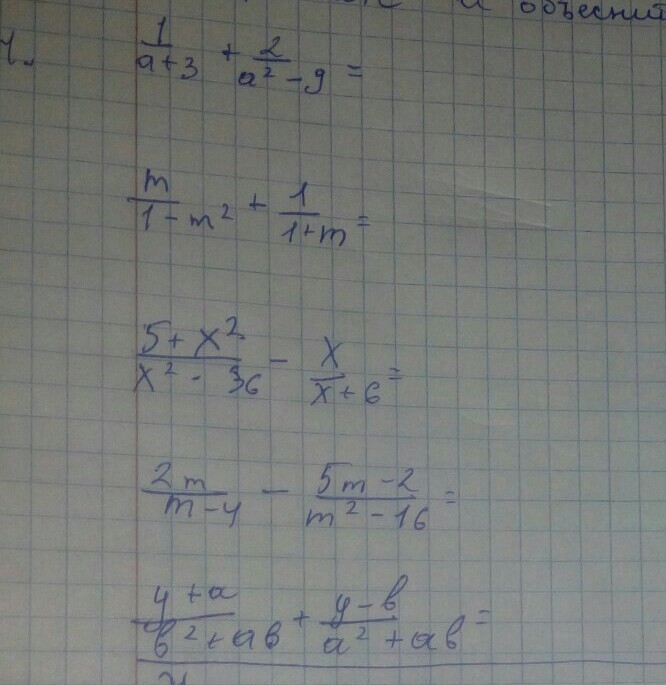 и объеснит
1.
1/(a+3) + 2/(a² - 9) =
m/(1 - m²) + 1/(1+m) =
(5 + x²)/(x² - 36) - x/(x + 6) =
2m/(m - 4) - (5m - 2)/(m² - 16) =
(y + a)/(b² + ab) + (y - b)/(a² + ab) =